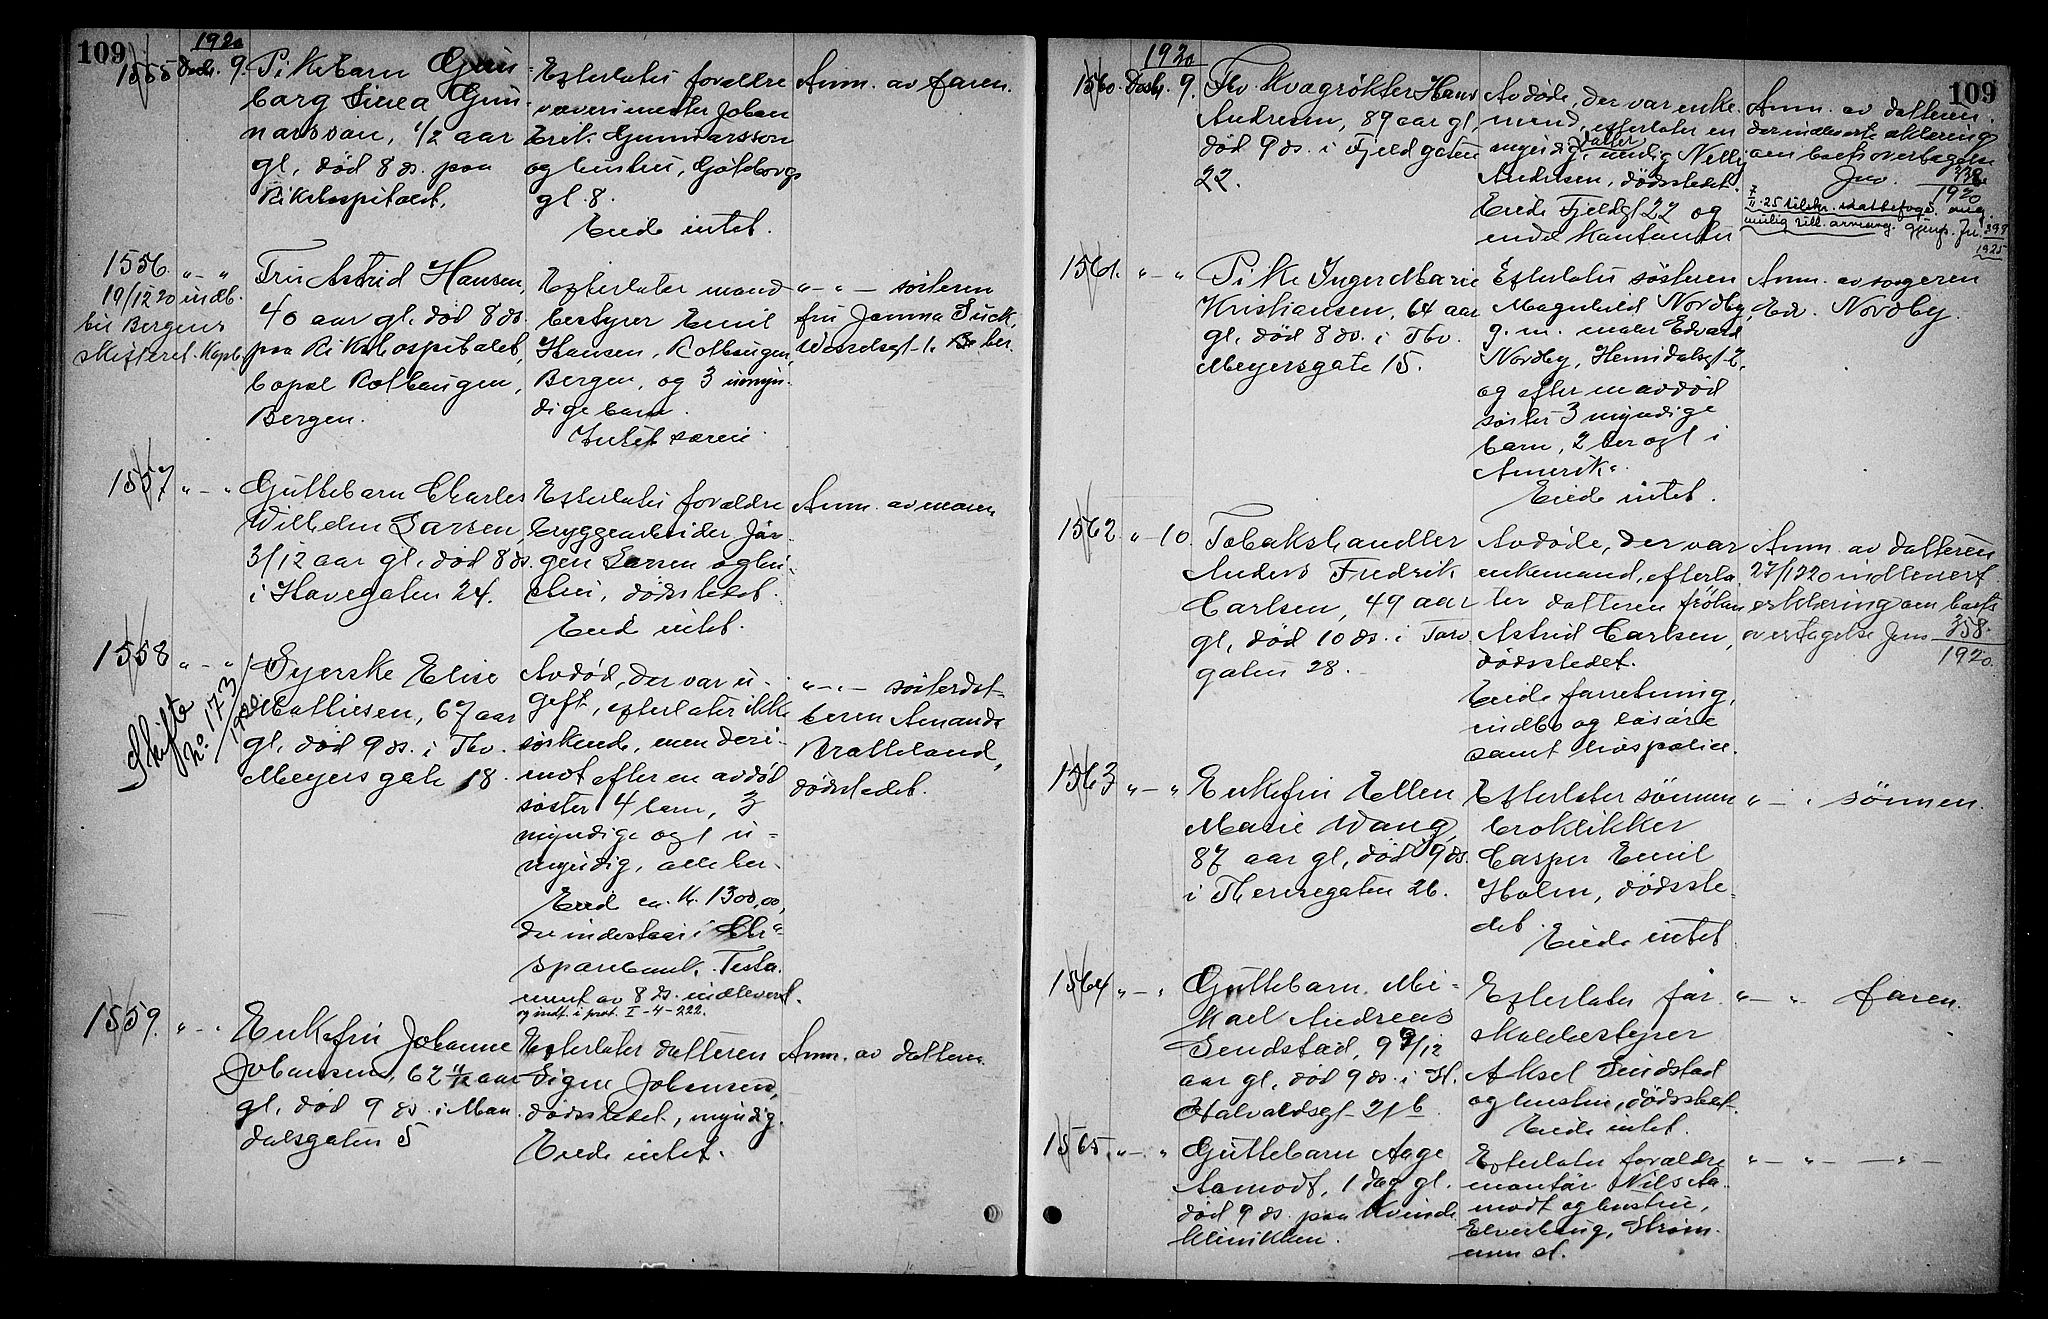 109
1920
1555 Decbr. 9.
Pikebarn Gun-
borg Sinea Gun-
narsson, 1/2 aar
gl., død 8 ds. paa
Rikshospitalet.
Efterlater forældre
vævermester Johan
Erik Gunnarsson
og hustru, Göteborgs
gt. 8.
Eiede intet.
Anm. av faren.
1556. " - "
19/12 20 indb.
til Bergens
skifteret. Kopbr.
Fru Astrid Hansen,
40 aar gl. død 8 ds.
paa Rikshospitalet,
bopæl Rothaugen,
Bergen.
Efterlater mand
bestyrer Emil
Hansen, Rothaugen,
Bergen, og 3 umyn-
dige barn.
Intet særeie.
" - " - søsteren
fru Jomma
1557 " - "
Guttebarn Charles
Wilhelm Larsen,
3/12 aar gl. død 8 ds.
i Havegaten 24.
Efterlater forældre
bryggearbeider Jør-
gen Larsen og hu-
stru, dødsstedet.
Eied intet.
Anm. av moren
1558 " - "
Skifte
No. 173/1920
Syerske Elise
Mathiesen, 67 aar
gl., død 9 ds. i Thv.
Meyers gate 18.
Avdød, der var u-
gift, efterlater ikke
søskende, men deri-
mot efter en avdød
søster 4 barn, 3
myndige og 1 u-
myndig, alle her.
Eied ca. Kr. 1300,00,
der indestaar i Chr.a
Sparebank. Testa-
ment av 8 ds. indleveret.
og indf. i prot. I-4-222.
" - " - søsterdat-
teren Amanda
Bratteland,
dødsstedet.
1559. " - "
Enkefru Johanne
Johansen, 62 11/12 aar
gl., død 9 ds. i Man-
dalsgaten 5
Efterlater datteren
Signe Johansen,
dødsstedet, myndig.
Eiede intet.
Anm. av datteren.
109
1920
1560. Decbr. 9.
Fhv. Kvægrøkter Hans
Andresen, 89 aar gl.,
død 9 ds. i Fjeldgaten
22.
Avdøde, der var enke-
mand, efterlater en
myndig datter, nemlig Nelly
Andresen, dødsstedet.
Eiede Fjeldgt 22 og
endel kontanter
Anm. av datteren.
der indleverte erklæring
om boets overtagelse
Jnr. 338/1920
1561. " - "
Pike Inger Marie
Kristiansen, 64 aar
gl., død 8 ds. i Thv.
Meyersgate 15.
Efterlater søsteren
Magnhild Nordby,
g. m. maler Edvard
Nordby, Hemsdalsgt 2,
og efter en avdød
søster 3 myndige
barn, 2 her og 1 i
Amerika.
Eiede intet.
Anm. av svogeren
Edv. Nordby.
1562 " - 10.
Tobakshandler
Anders Fredrik
Carlsen, 49 aar
gl., død 10 ds. i Torv
gaten 28.
Avdøde, der var
enkemand, efterla-
ter datteren frøken
Astrid Carlsen,
dødsstedet.
Eiede forretning,
indbo og løsøre
samt livspolice.
Anm. av datteren
27/12 20 indleveret
erklæring om boets
overtagelse Jnr. 358/1920.
1563 " - "
Enkefru Ellen
Marie Wang,
87 aar gl., død 9 ds.
i Theresegaten 26.
Efterlater sønnen
Casper Emil
Holm, dødsste-
det.
Eiede intet
" - " sønnen.
1564 " - "
Guttebarn Mi-
kael Andreas
Sendstad, 9 9/12
aar gl., død 9 ds. i H.
Halvaldsgt 21 b.
Efterlater far
skolebestyrer
Aksel Sendstad
og hustru, dødsstedet.
Eiede intet.
" - " faren.
1565. " - "
Guttebarn Aage
Aamodt, 1 dag gl.
død 9 ds. paa Kvinde
klinikken.
Efterlater forældre
montør Nils Aa-
modt og hustru,
Elverhaug, Strøm-
men st.
" - " - - " -